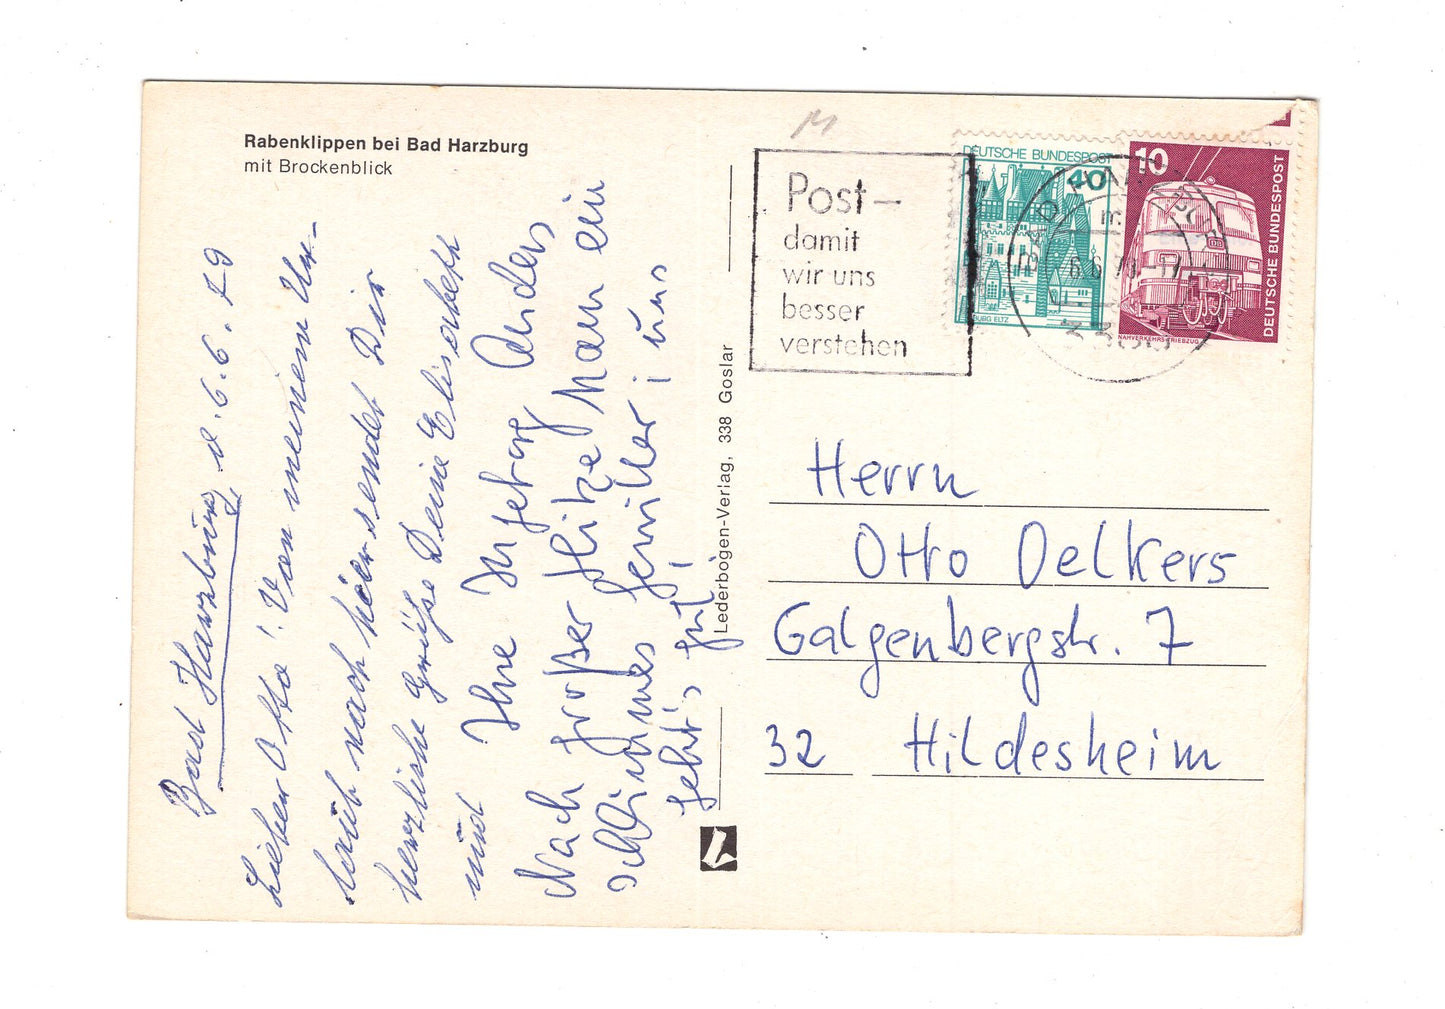 Rabenklippen bei Bad Harzburg
mit Brockenblick
Bad Harzburg, d. 6.6.79
Lieber Otto! Von meinem Ur-
laub nach hier sendet Dir
herzliche Grüße Deine Elisabeth
und Ihre Ingeborg Anders
Nach großer Hitze Nam ein
schlimmes Gewitter; uns
geht's gut!
Lederbogen-Verlag, 338 Goslar
Post-
damit
wir uns
besser
verstehen
DEUTSCHE BUNDESPOST
40
BURG ELTZ
10
DEUTSCHE BUNDESPOST
NAHVERKEHRS-TRIEBZUG
BAD HARZBURG
m
6.6.79-17
Herrn
Otto Oelkers
Galgenbergstr. 7
32 Hildesheim